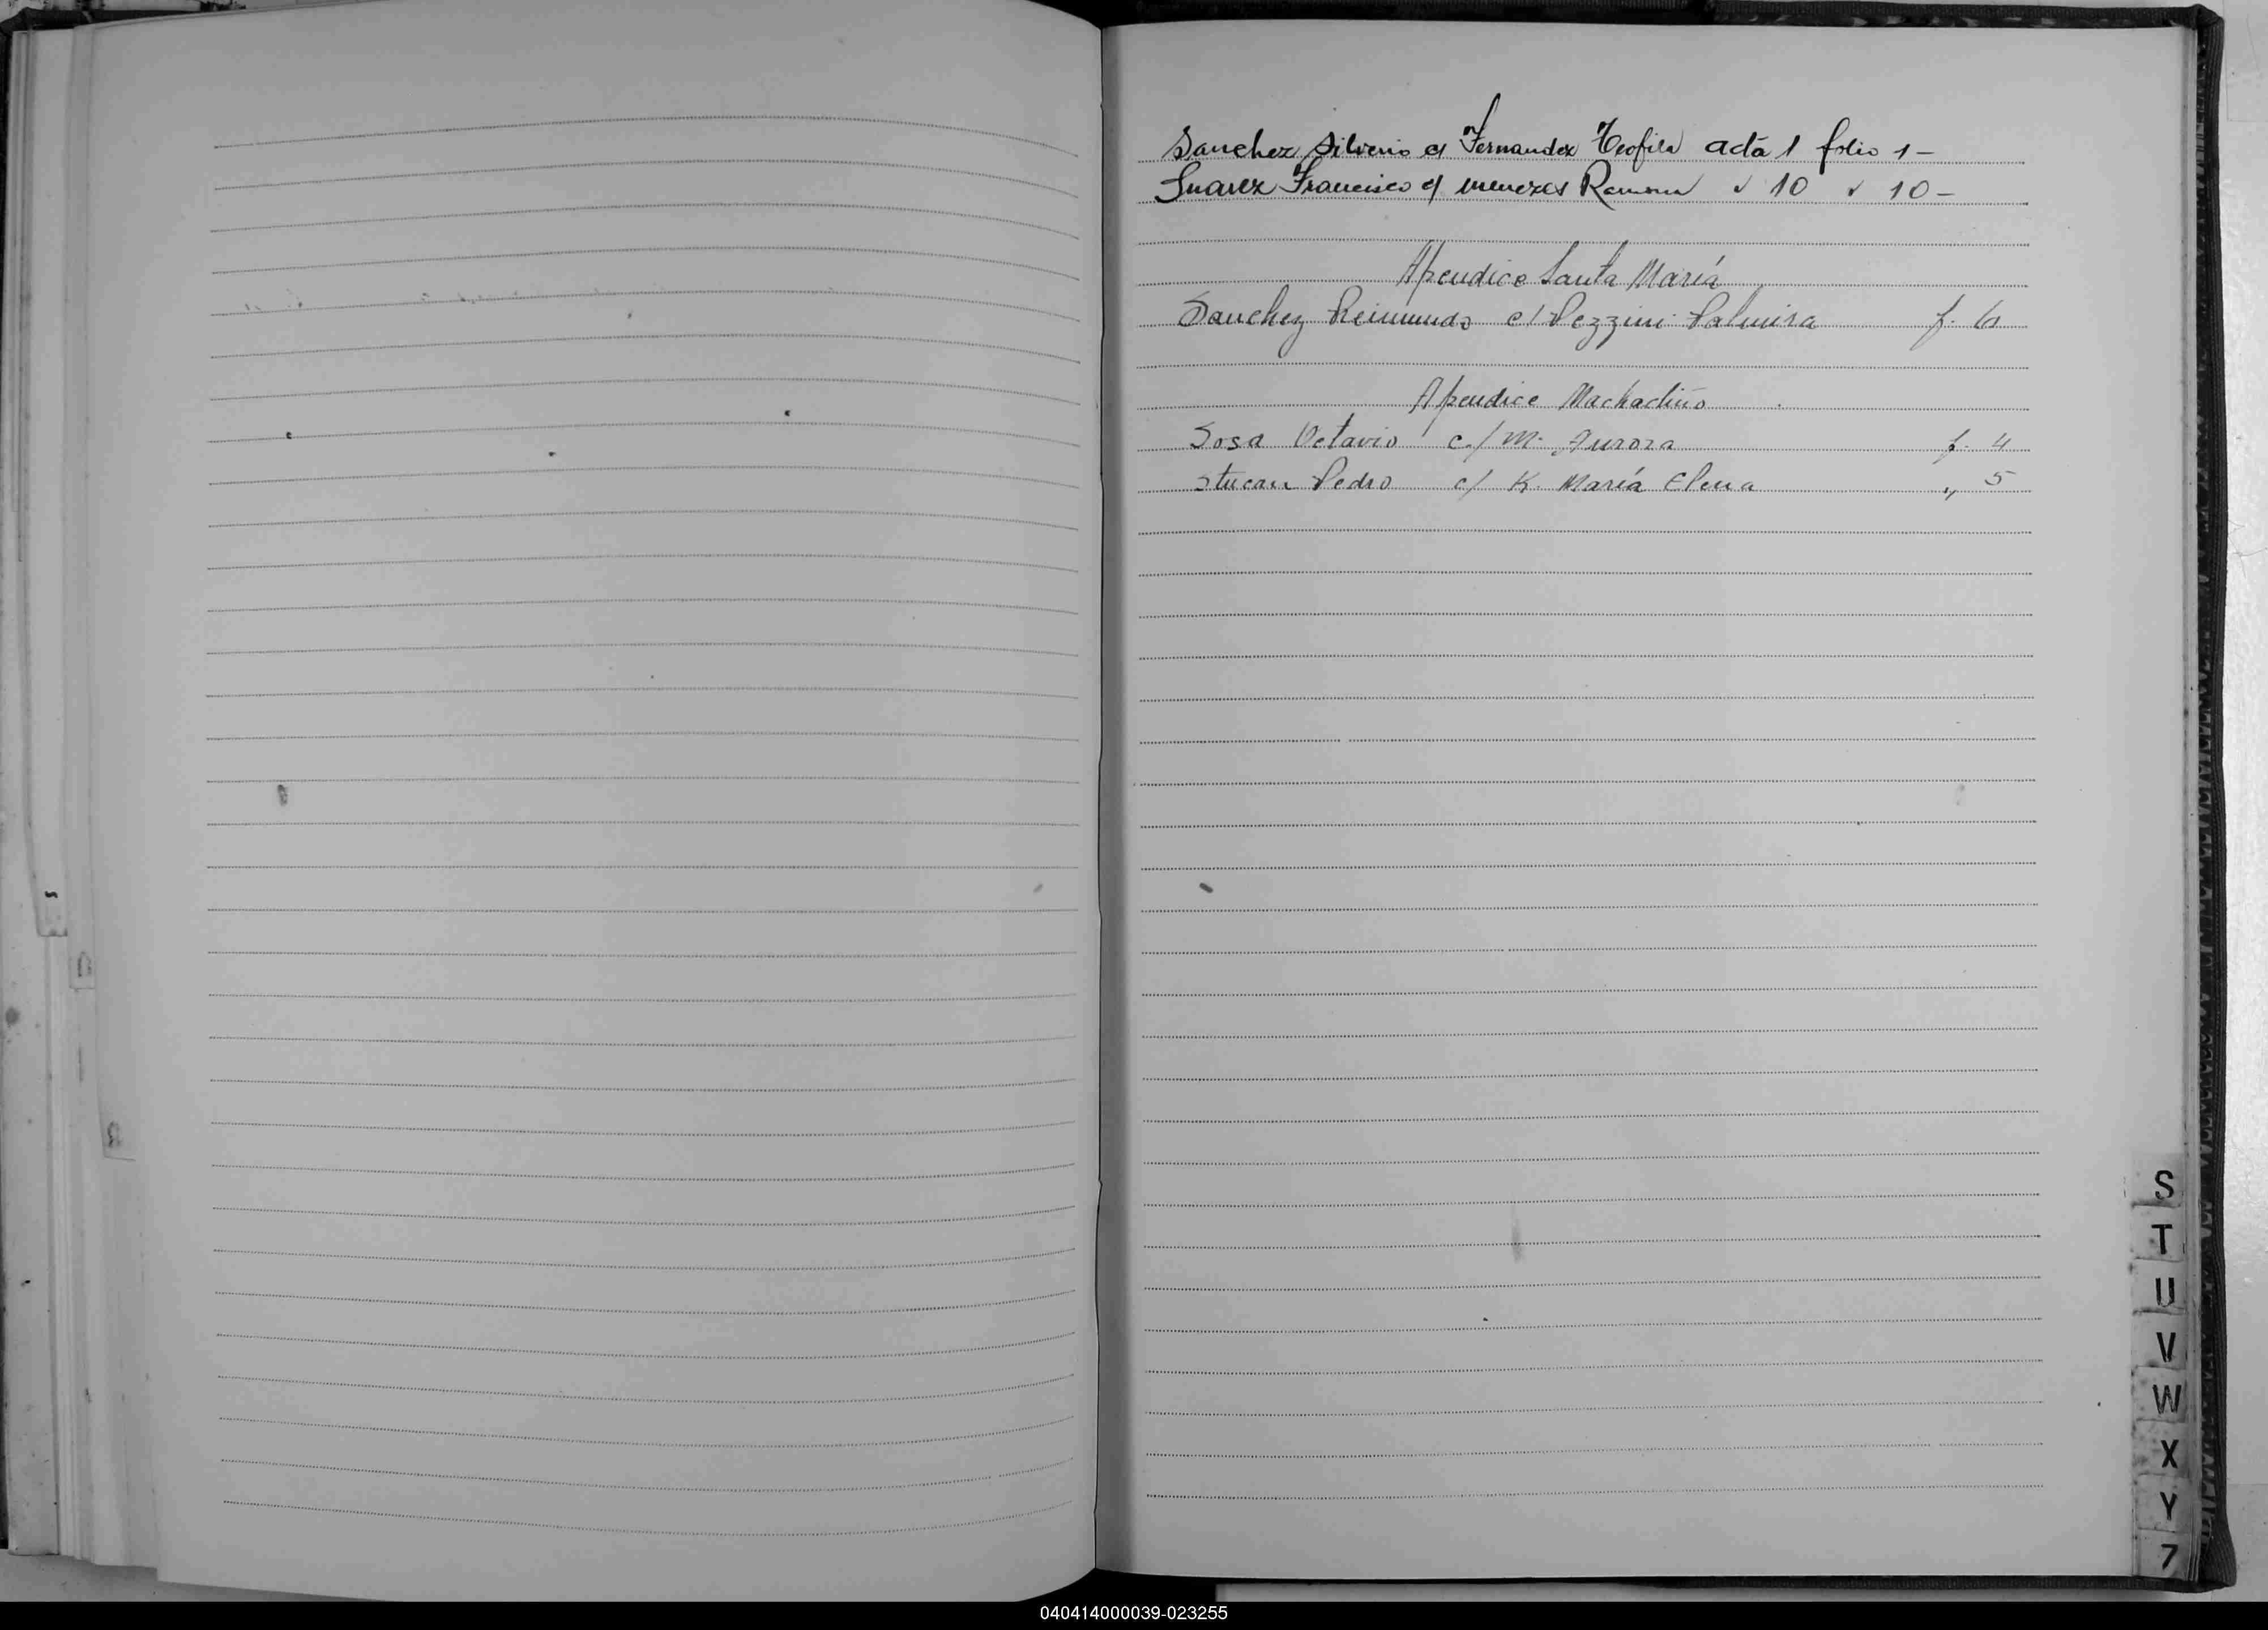 Sanchez Silverio c/ Fernandez Teofila acta 1 folio 1-
Suarez Francisco c/ menezes Ramona " 10 " 10-
Apendice Santa María
Sanchez Reimundo c/ Pezzini Palmira f. 6
Apendice Machadiño
Sosa Octavio c/ M. Aurora f. 4
Stucan Pedro c/ K. María Elena " 5
S
T
U
V
W
X
Y
Z
040414000039-023255